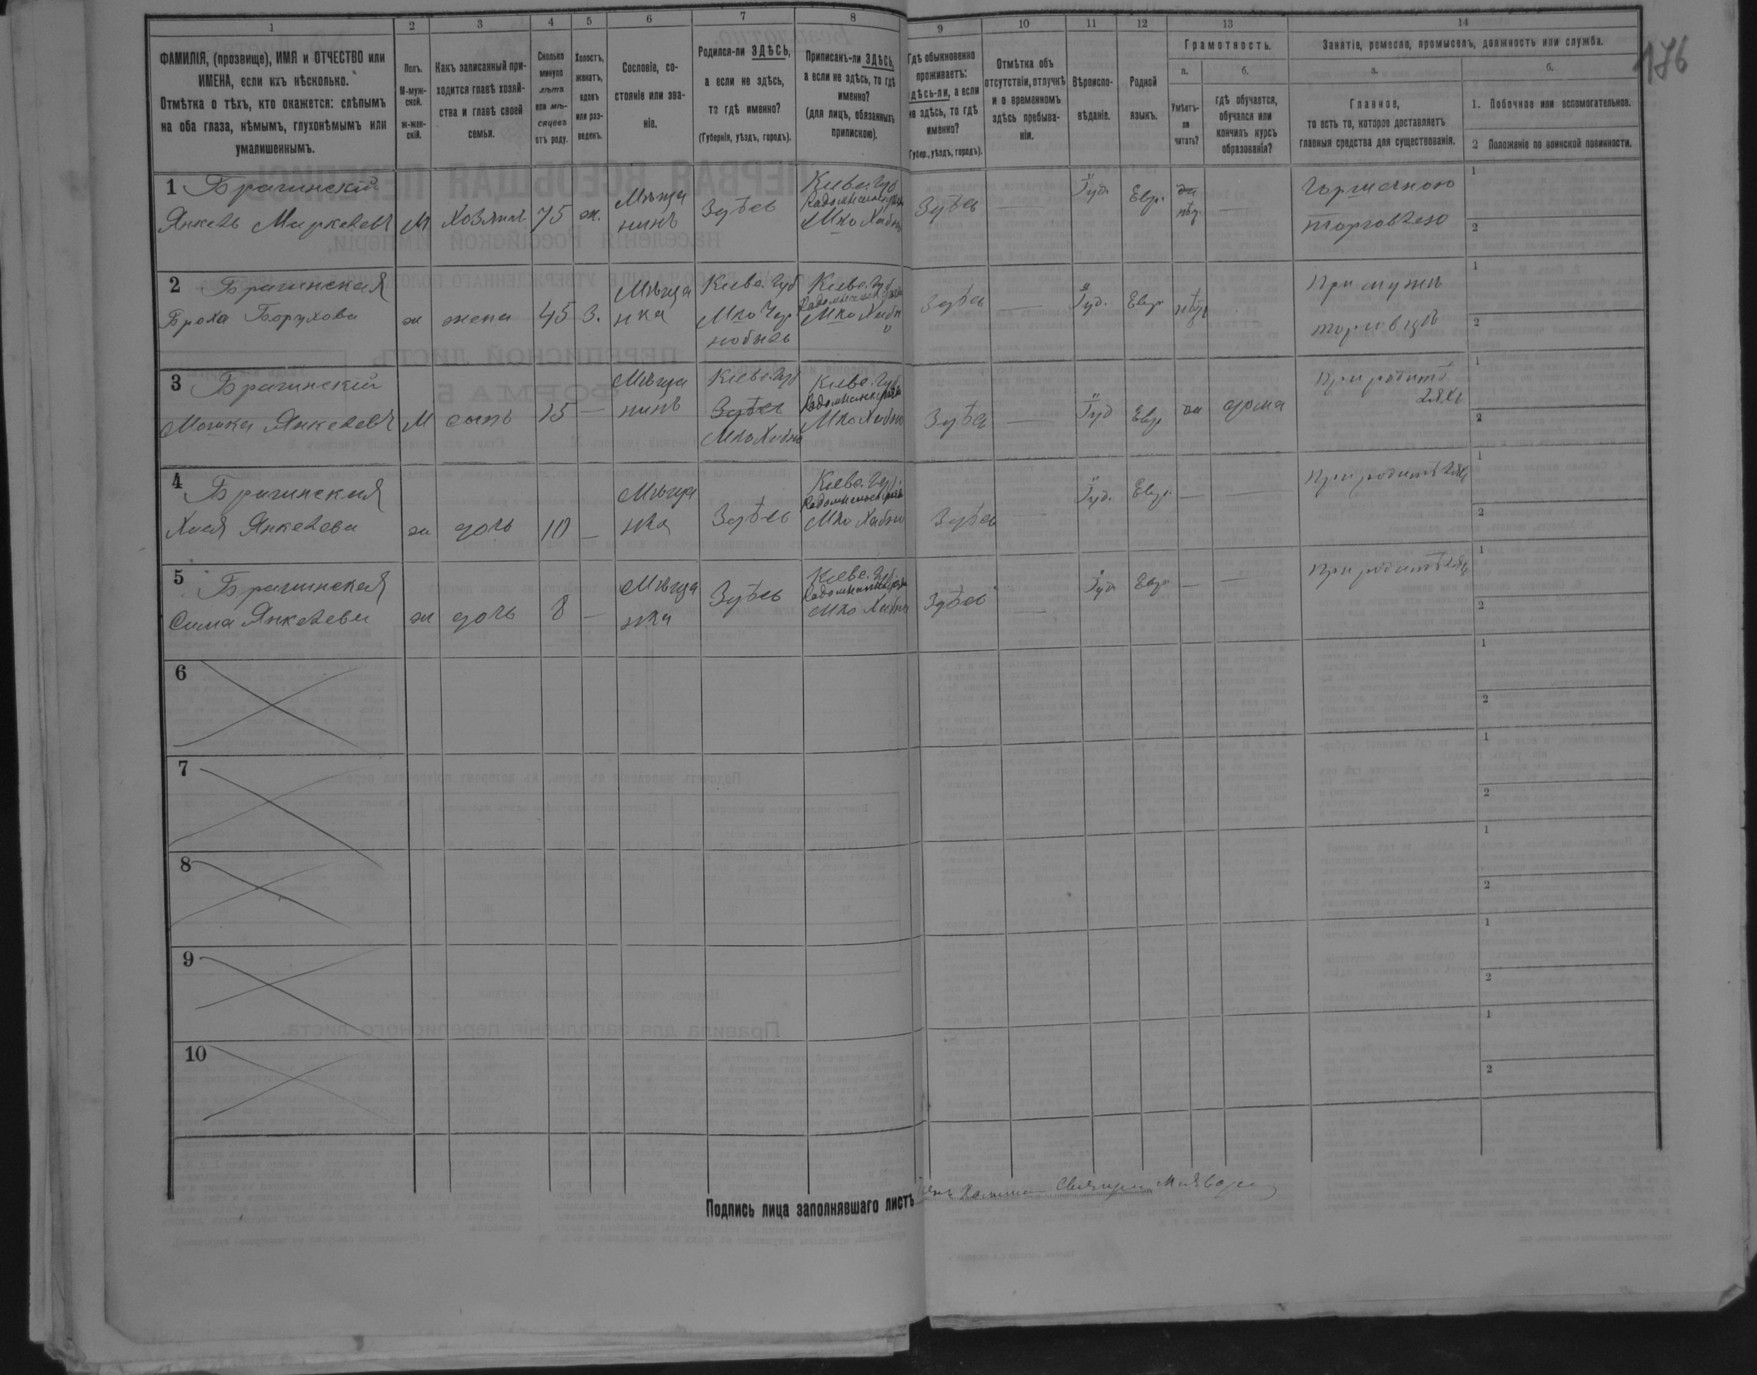 1 2 3 4 5 6 7 8 9 10 11 12 13 14
ФАМИЛІЯ, (прозвище), ИМЯ и ОТЧЕСТВО или
ИМЕНА, если ихъ нѣсколько.
Отмѣтка о тѣхъ, кто окажется: слѣпымъ
на оба глаза, нѣмымъ, глухонѣмымъ или
умалишеннымъ.
Полъ.
М-муж-
ской.
ж-жен-
скій.
Какъ записанный при-
ходится главѣ хозяй-
ства и главѣ своей
семьи.
Сколько
минуло
лѣтъ
или мѣ-
сяцевъ
отъ роду.
Холостъ,
женатъ,
вдовъ
или раз-
веденъ.
Сословіе, со-
стояніе или зва-
ніе.
Родился-ли ЗДѢСЬ,
а если не здѣсь,
то гдѣ именно?
(Губернія, уѣздъ, городъ).
Приписанъ-ли ЗДѢСЬ,
а если не здѣсь, то гдѣ
именно?
(для лицъ, обязанныхъ
припискою).
Гдѣ обыкновенно
проживаетъ:
здѣсь-ли, а если
не здѣсь, то гдѣ
именно?
(Губер., уѣздъ, городъ).
Отмѣтка объ
отсутствіи, отлучкѣ
и о временномъ
здѣсь пребыва-
ніи.
Вѣроиспо-
вѣданіе.
Родной
языкъ.
Грамотность.
а.
Умѣетъ-
ли
читать?
б.
гдѣ обучается,
обучался или
кончилъ курсъ
образованія?
Занятіе, ремесло, промыселъ, должность или служба.
а.
Главное,
то есть то, которое доставляетъ
главныя средства для существованія.
б.
1. Побочное или вспомогательное.
2 Положеніе по воинской повинности.
176
1 Брагинскій
Янкель Марковъ М Хозяинъ 75 ж. Мѣща
нинъ Здѣсь Кіевс. Губ
Радомысльск
Мко Хабно Здѣсь — Іуд. Евр. да
нѣт. — торговлею
1
2
2 Брагинская
Броха Борухова ж жена 45 З. Мѣща
нка Кіевс. Губ
Мко Чер
нобыль Кіевс. Губ
Мко Хабно Здѣсь — Іуд. Евр нѣт При мужѣ
торговцѣ
1
2
3 Брагинскій
Мошка Янкелевъ М сынъ 15 — Мѣща
нинъ Кіевс. Губ
Здѣсь
Мко Хабно Кіевс. Губ
Мко Хабно Здѣсь — Іуд Евр да дома При родит
еляхъ
1
2
4 Брагинская
Хая Янкелева ж дочь 10 — Мѣща
нка Здѣсь Кіевс. Губ.
Мко Хабно Здѣсь Іуд. Евр. — — При родителяхъ
1
2
5 Брагинская
Сима Янкелева ж дочь 8 — Мѣща
нка Здѣсь Кіевс. Губ.
Мко Хабно Здѣсь — Іуд Евр — — При родителяхъ
1
2
6
1
2
7
1
2
8
1
2
9
1
2
10
1
2
Подпись лица заполнявшаго листъ